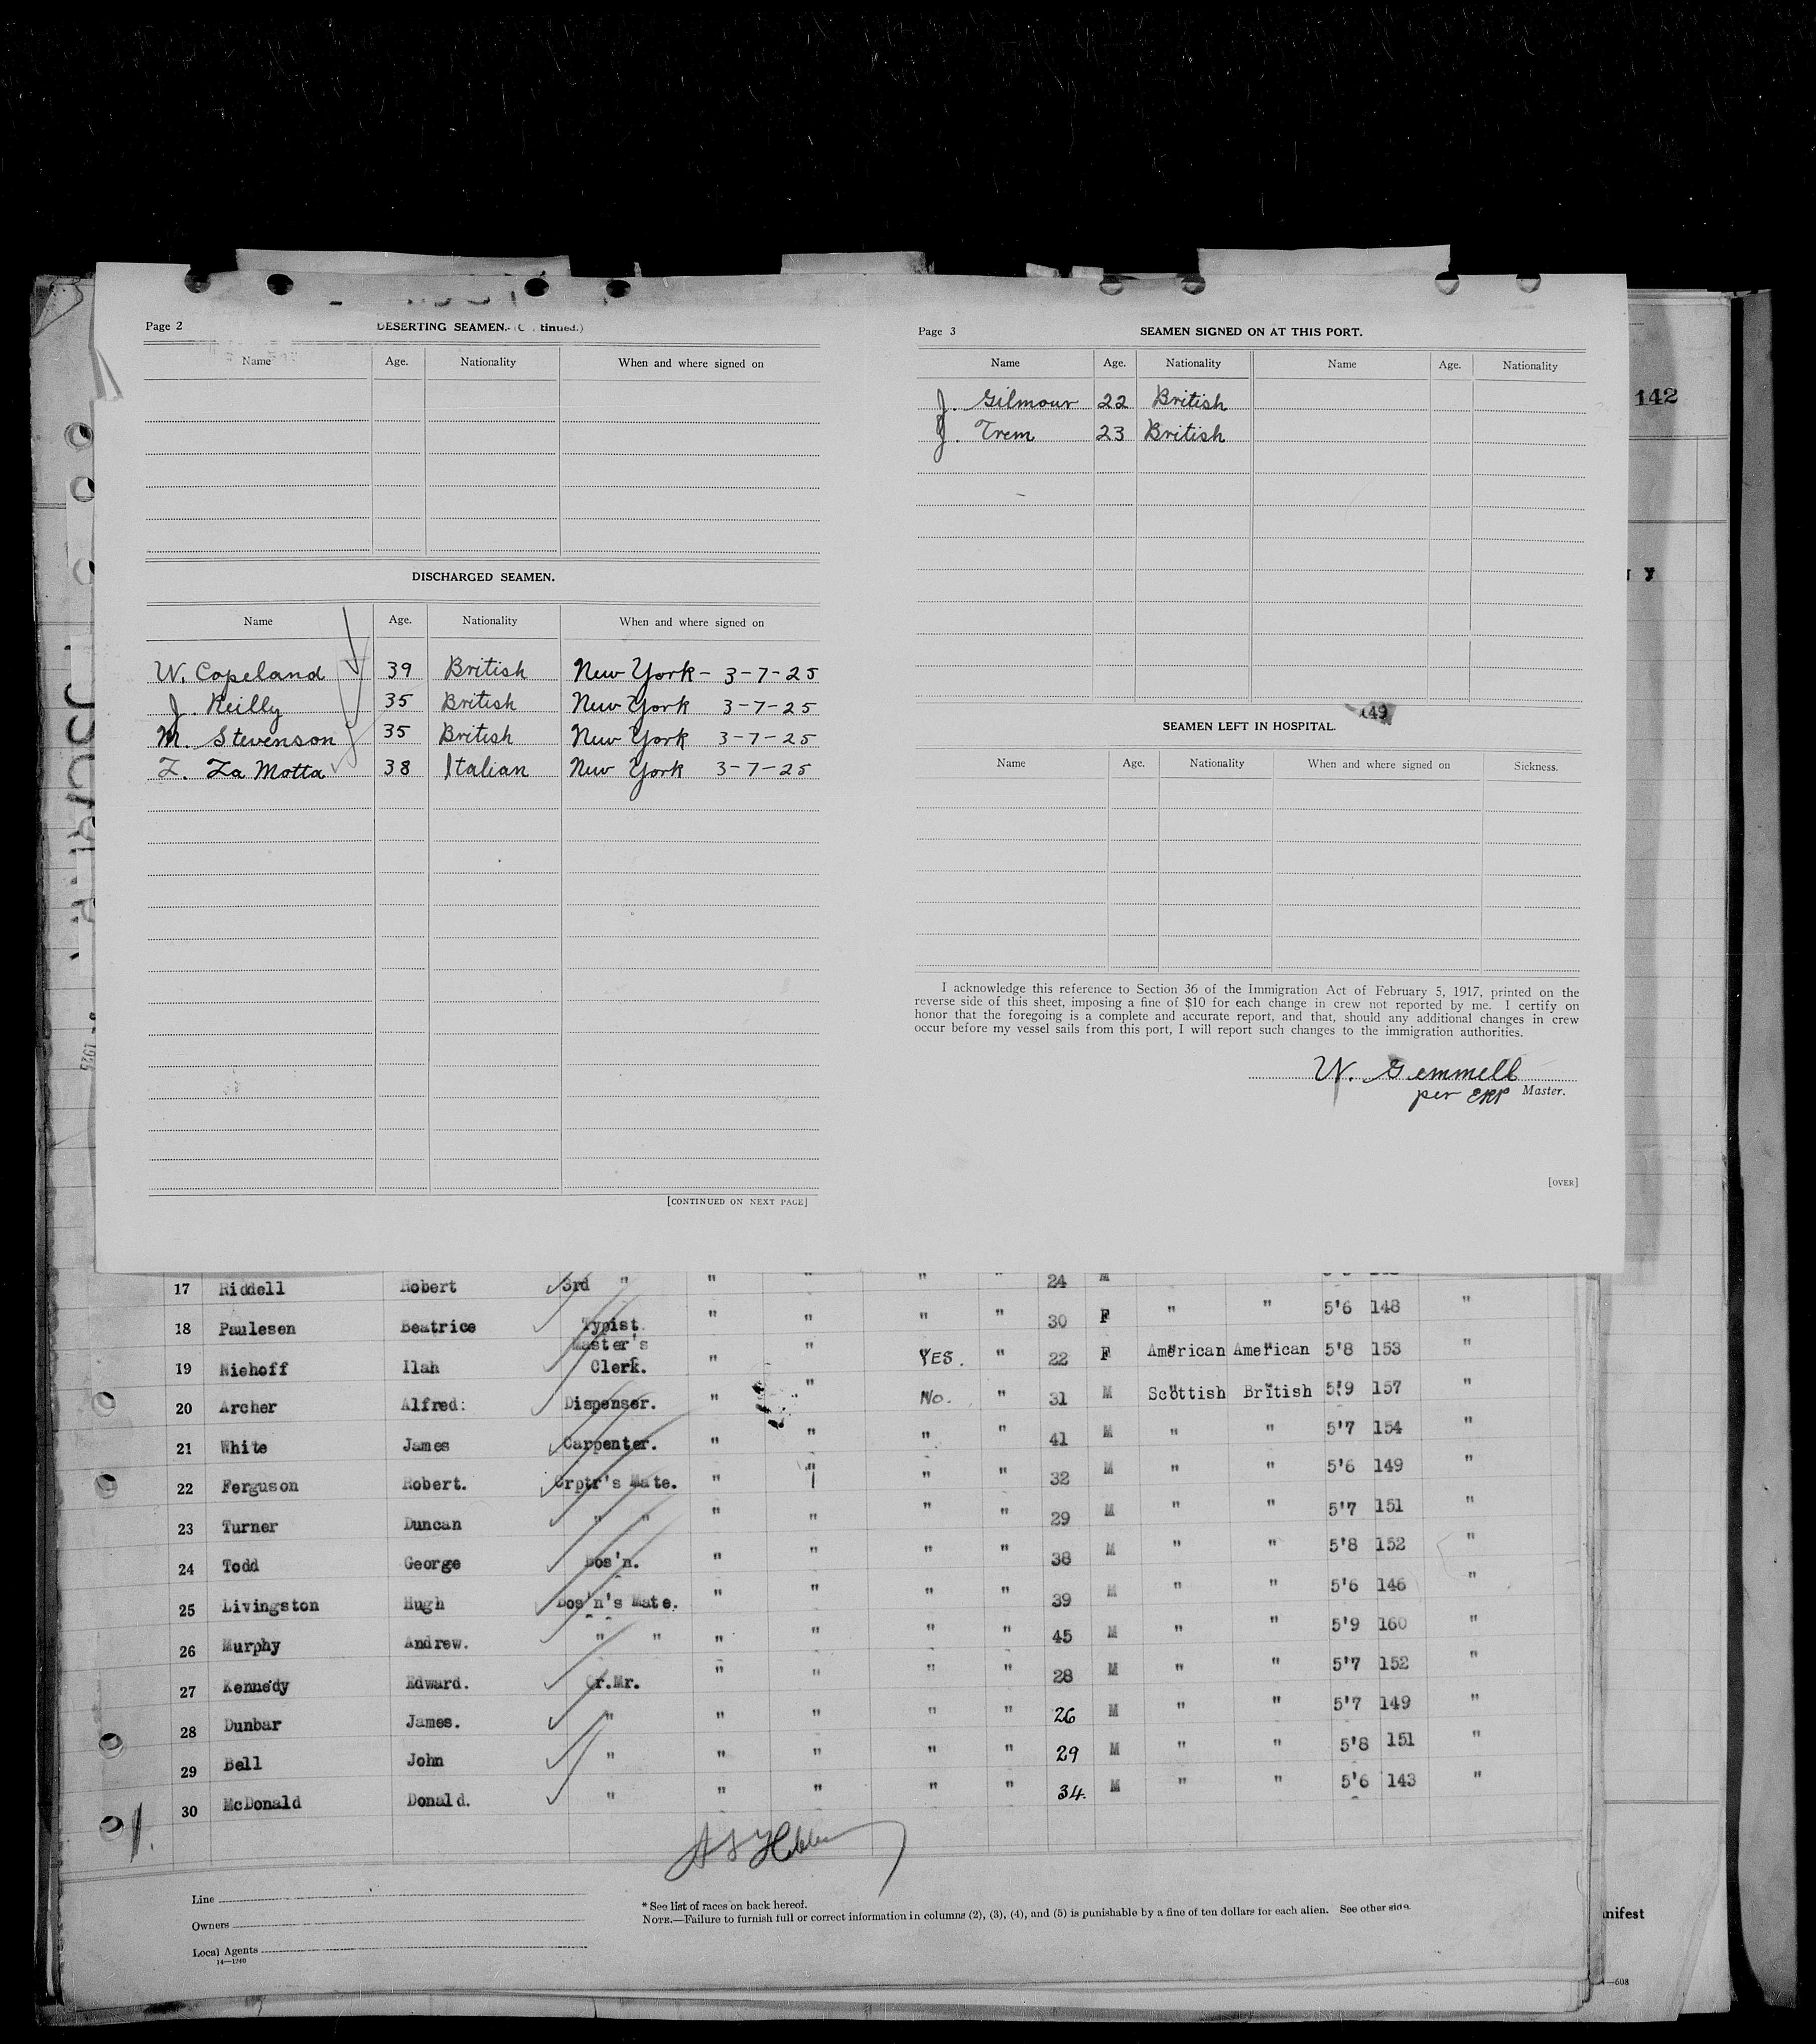 Page 2
DESERTING SEAMEN.
Name Age. Nationality When and where signed on
DISCHARGED SEAMEN.
Name Age. Nationality When and where signed on
W. Copeland 39 British New York - 3-7-25
J. Reilly 35 British New York 3-7-25
M. Stevenson 35 British New York 3-7-25
La Motta 38 Italian New York 3-7-25
[CONTINUED ON NEXT PAGE]
Page 3
SEAMEN SIGNED ON AT THIS PORT.
Name Age. Nationality Name Age. Nationality
J. Gilmour 22 British
J. Trem 23 British
149
SEAMEN LEFT IN HOSPITAL.
Name Age. Nationality When and where signed on Sickness.
I acknowledge this reference to Section 36 of the Immigration Act of February 5, 1917, printed on the
reverse side of this sheet, imposing a fine of $10 for each change in crew not reported by me. I certify on
honor that the foregoing is a complete and accurate report, and that, should any additional changes in crew
occur before my vessel sails from this port, I will report such changes to the immigration authorities.
W. Gemmell
per Master.
[OVER]
142
17 Riddell Robert 3rd " " " " " 24 M
18 Paulesen Beatrice Typist. " " " " 30 F " " 5'6 148 "
Master's
19 Niehoff Ilah Clerk. " " YES. " 22 F American American 5'8 153 "
20 Archer Alfred: Dispenser. " " No. " 31 M Scottish British 5'9 157 "
21 White James Carpenter. " " " " 41 M " " 5'7 154 "
22 Ferguson Robert. Crptr's Mate. " " " " 32 M " " 5'6 149 "
23 Turner Duncan " " " " " " 29 M " " 5'7 151 "
24 Todd George Bos'n. " " " " 38 M " " 5'8 152 "
25 Livingston Hugh Bos'n's Mate. " " " " 39 M " " 5'6 146 "
26 Murphy Andrew. " " " " " " 45 M " " 5'9 160 "
27 Kennedy Edward. Qr.Mr. " " " " 28 M " " 5'7 152 "
28 Dunbar James. " " " " " 26 M " " 5'7 149 "
29 Bell John " " " " " 29 M " " 5'8 151 "
30 McDonald Donald. " " " " " 34. M " " 5'6 143 "
Line
Owners
Local Agents
14—1240
* See list of races on back hereof.
NOTE.—Failure to furnish full or correct information in columns (2), (3), (4), and (5) is punishable by a fine of ten dollars for each alien. See other side.